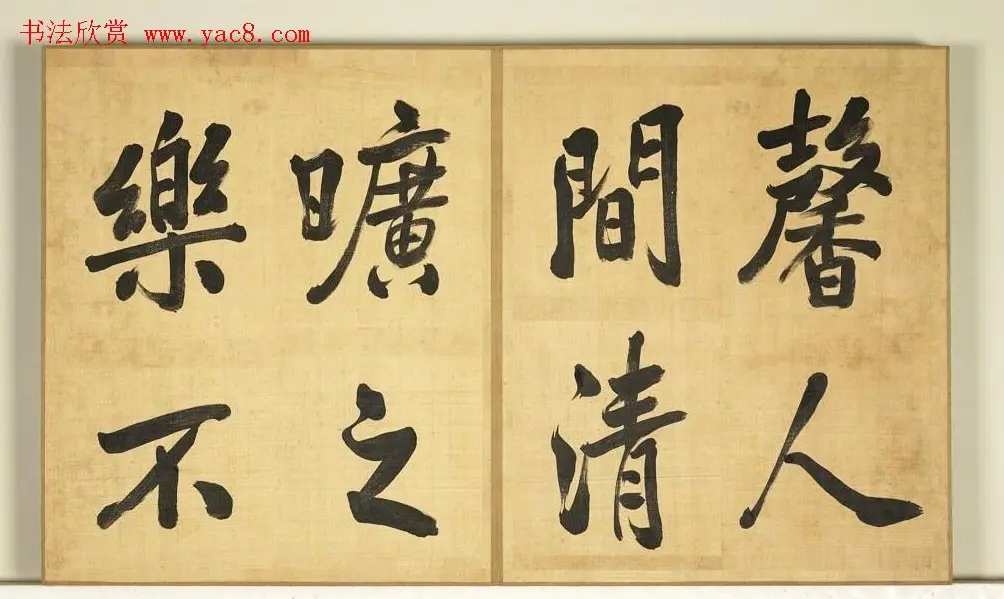 书法欣赏 www.yac8.com
馨人
間清
曠之
樂不